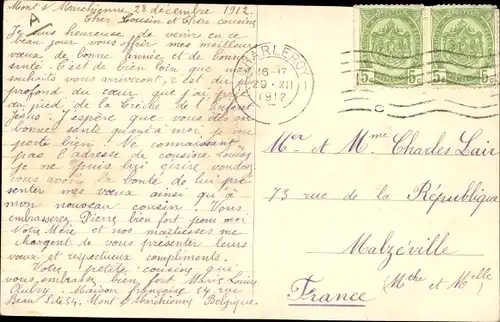 Mont s/ Marchienne 28 décembre 1912.
Cher Cousin et Chère cousine
Je suis heureuse de venir, en ce
beau jour vous offrir mes meilleurs
vœux de bonne année et de bonne
santé. C'est de bien loin que mes
souhaits vous arriveront, c'est du plus
profond du cœur que j'ai prié
au pied de la Crèche de l'Enfant
Jésus. J'espère que vous êtes en
bonne santé quant à moi, je me
porte bien. Ne connaissant
pas l'adresse de cousine Louise
je ne puis lui écrire voudriez
vous avoir la bonté de lui pré
senter mes vœux ainsi qu'à
mon nouveau cousin. Vous
embrasserez Pierre bien fort pour moi
Notre Mère et nos maîtresses me
chargent de vous présenter leurs
vœux et respectueux compliments.
Votre petite cousine qui
vous embrasse bien fort Marie Louise
Aubry. Maison française 54 rue
Beau Site 54. Mont s/ Marchienne Belgique.
CHARLEROY 1
16-17
29 XII
1912
5c 5c 5c 5c
Mr et Mme Charles Lair
73 rue de la République
Malzéville
(Mthe et Mlle)
France